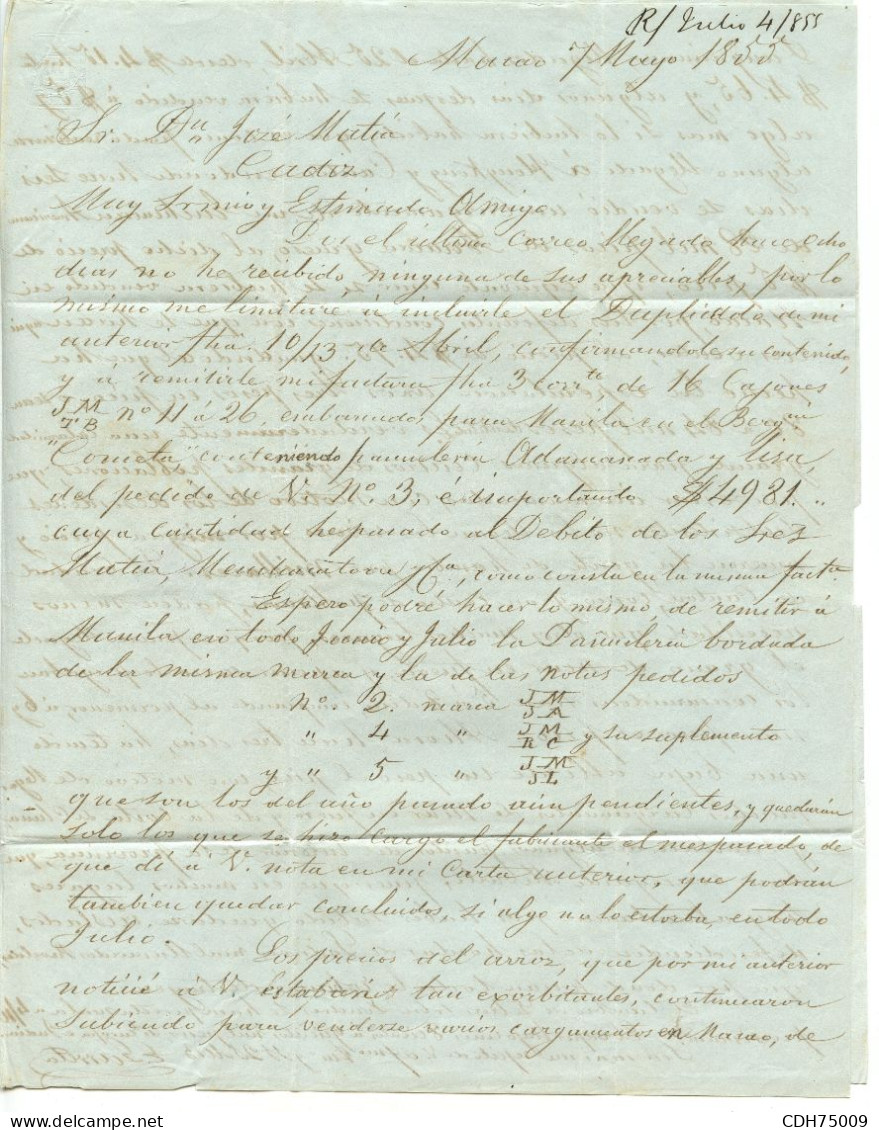 R/ Julio 4/855
Macao 7 Mayo 1855
Sr. Dn José Matia
Cadiz
Muy Sr mio y Estimado Amigo
Por el último correo llegado hace ocho
dias no he recibido ninguna de sus apreciables, por lo
mismo me limitaré á incluirle el Duplicado de mi
anterior fha. 10/13 de Abril, confirmandole su contenido,
y á remitirle mi factura fha 3 corrte de 16 Cajones
JM
TB nº 11 á 26 embarcados para Manila en el Bergn
"Cometa" conteniendo pañuleria Adamascada y lisa,
del pedido de V. Nº. 3, é importando $4981..
cuya cantidad he pasado al Debito de los Sres
Matia, Menchacatorre y Ca, como consta en la misma factra.
Espero podré hacer lo mismo, de remitir á
Manila en todo Junio y Julio la Pañuleria bordada
de la misma marca y la de las notas pedidos
nº. 2. marca JM
JA
" 4 " JM
RC y su suplemento
y " 5 " JM
JL
que son los del año pasado aún pendientes, y quedarán
solo los que se hizo cargo el fabricante el mes pasado, de
que dí á V. nota en mi carta anterior, que podrán
tambien quedar concluidos, si algo no lo estorba, en todo
Julio.
Los precios del arroz, que por mi anterior
noticié á V. estaban tan exorbitantes, continuaron
subiendo para venderse varios cargamentos en Macao, de
CDH75009